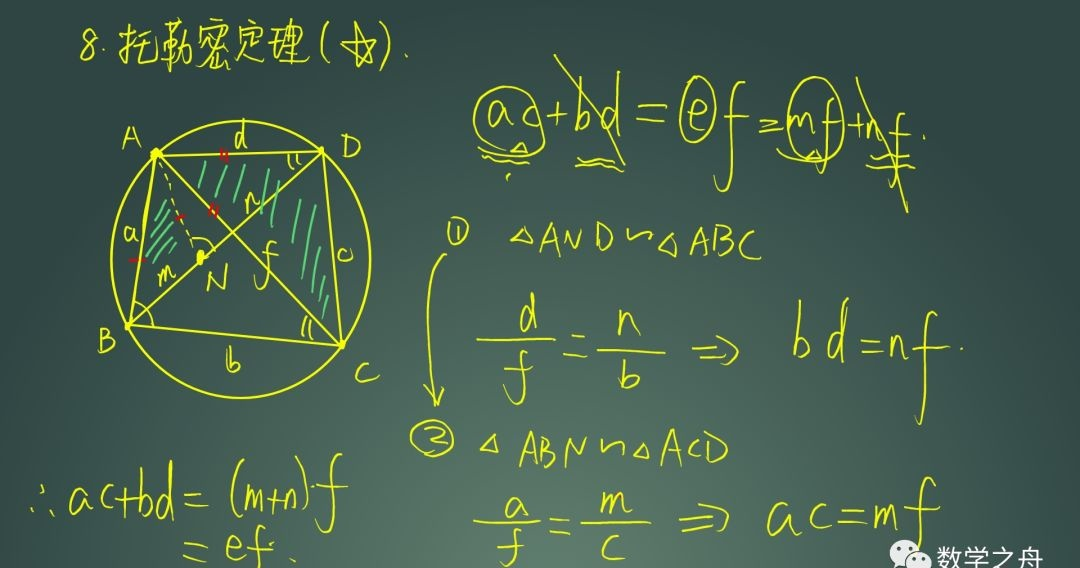 8. 托勒密定理(☆).
ac+bd=ef=mf+nf.
A
d
D
a
n
m
N
f
c
B
b
C
① △AND∽△ABC
d/f=n/b⇒bd=nf.
② △ABN∽△ACD
a/f=m/c⇒ac=mf
∴ac+bd=(m+n)·f
=ef.
数学之舟